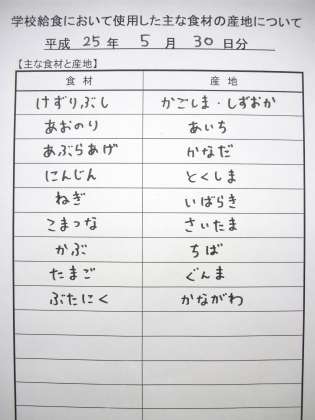 学校給食において使用した主な食材の産地について
平成 25 年 5 月 30 日分
【主な食材と産地】
食材 産地
けずりぶし かごしま・しずおか
あおのり あいち
あぶらあげ かなだ
にんじん とくしま
ねぎ いばらき
こまつな さいたま
かぶ ちば
たまご ぐんま
ぶたにく かながわ